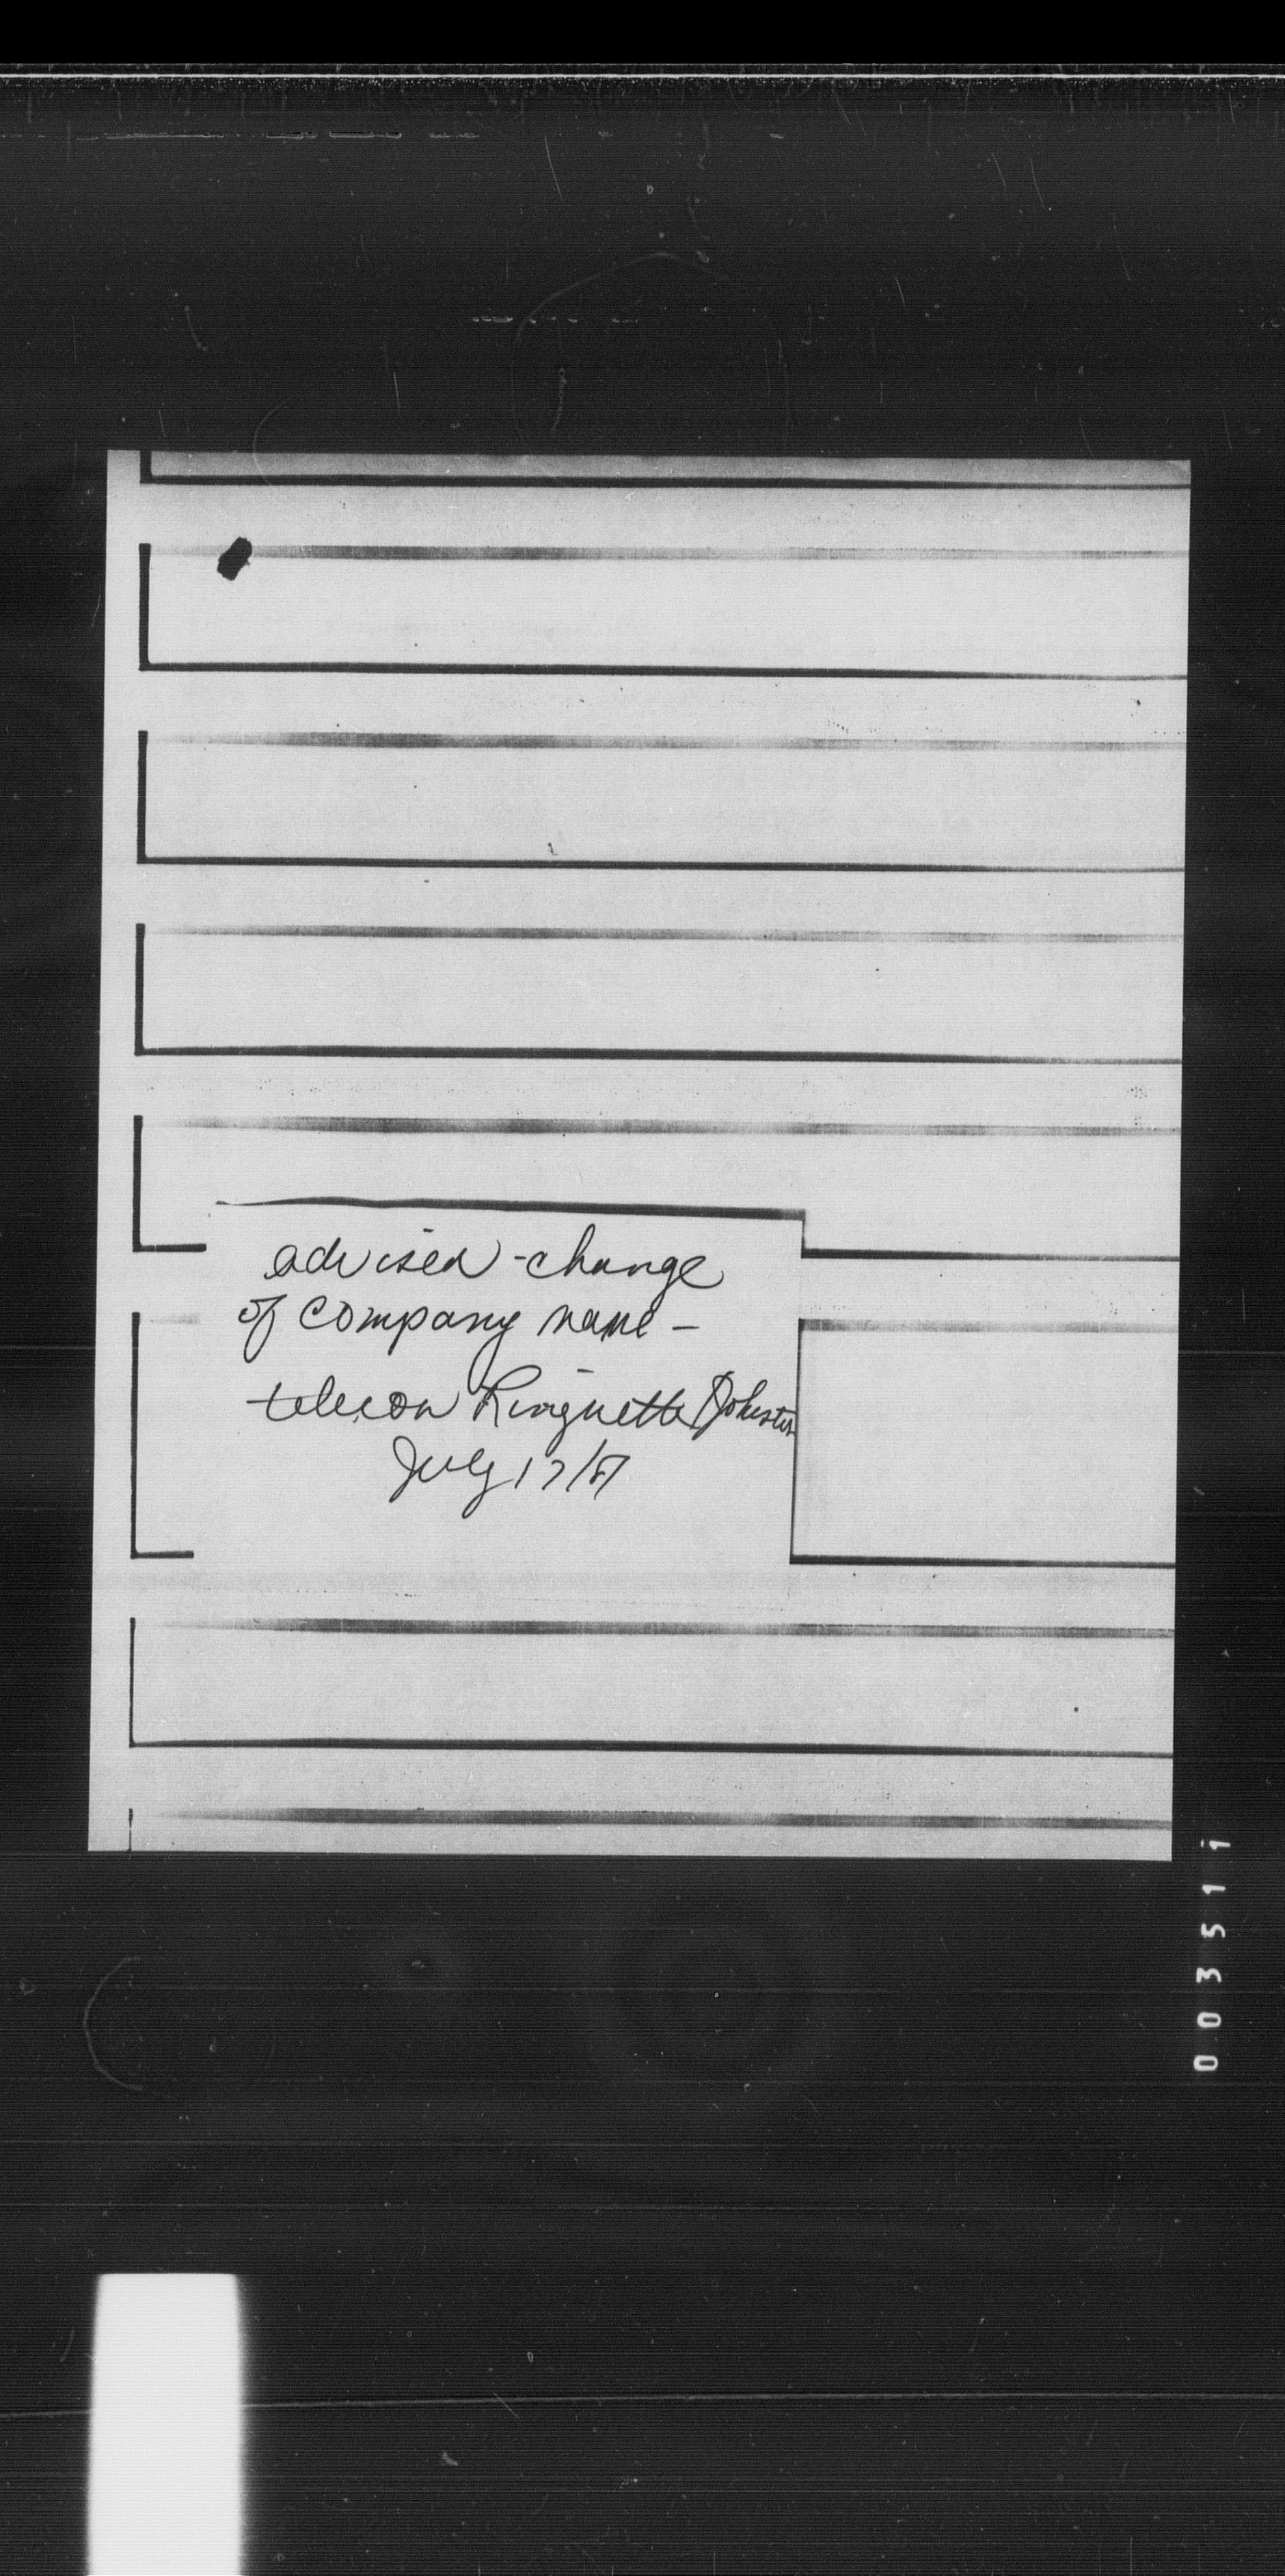 advised - change
of company name -
telecon Ringuette /
July 17/67
003511